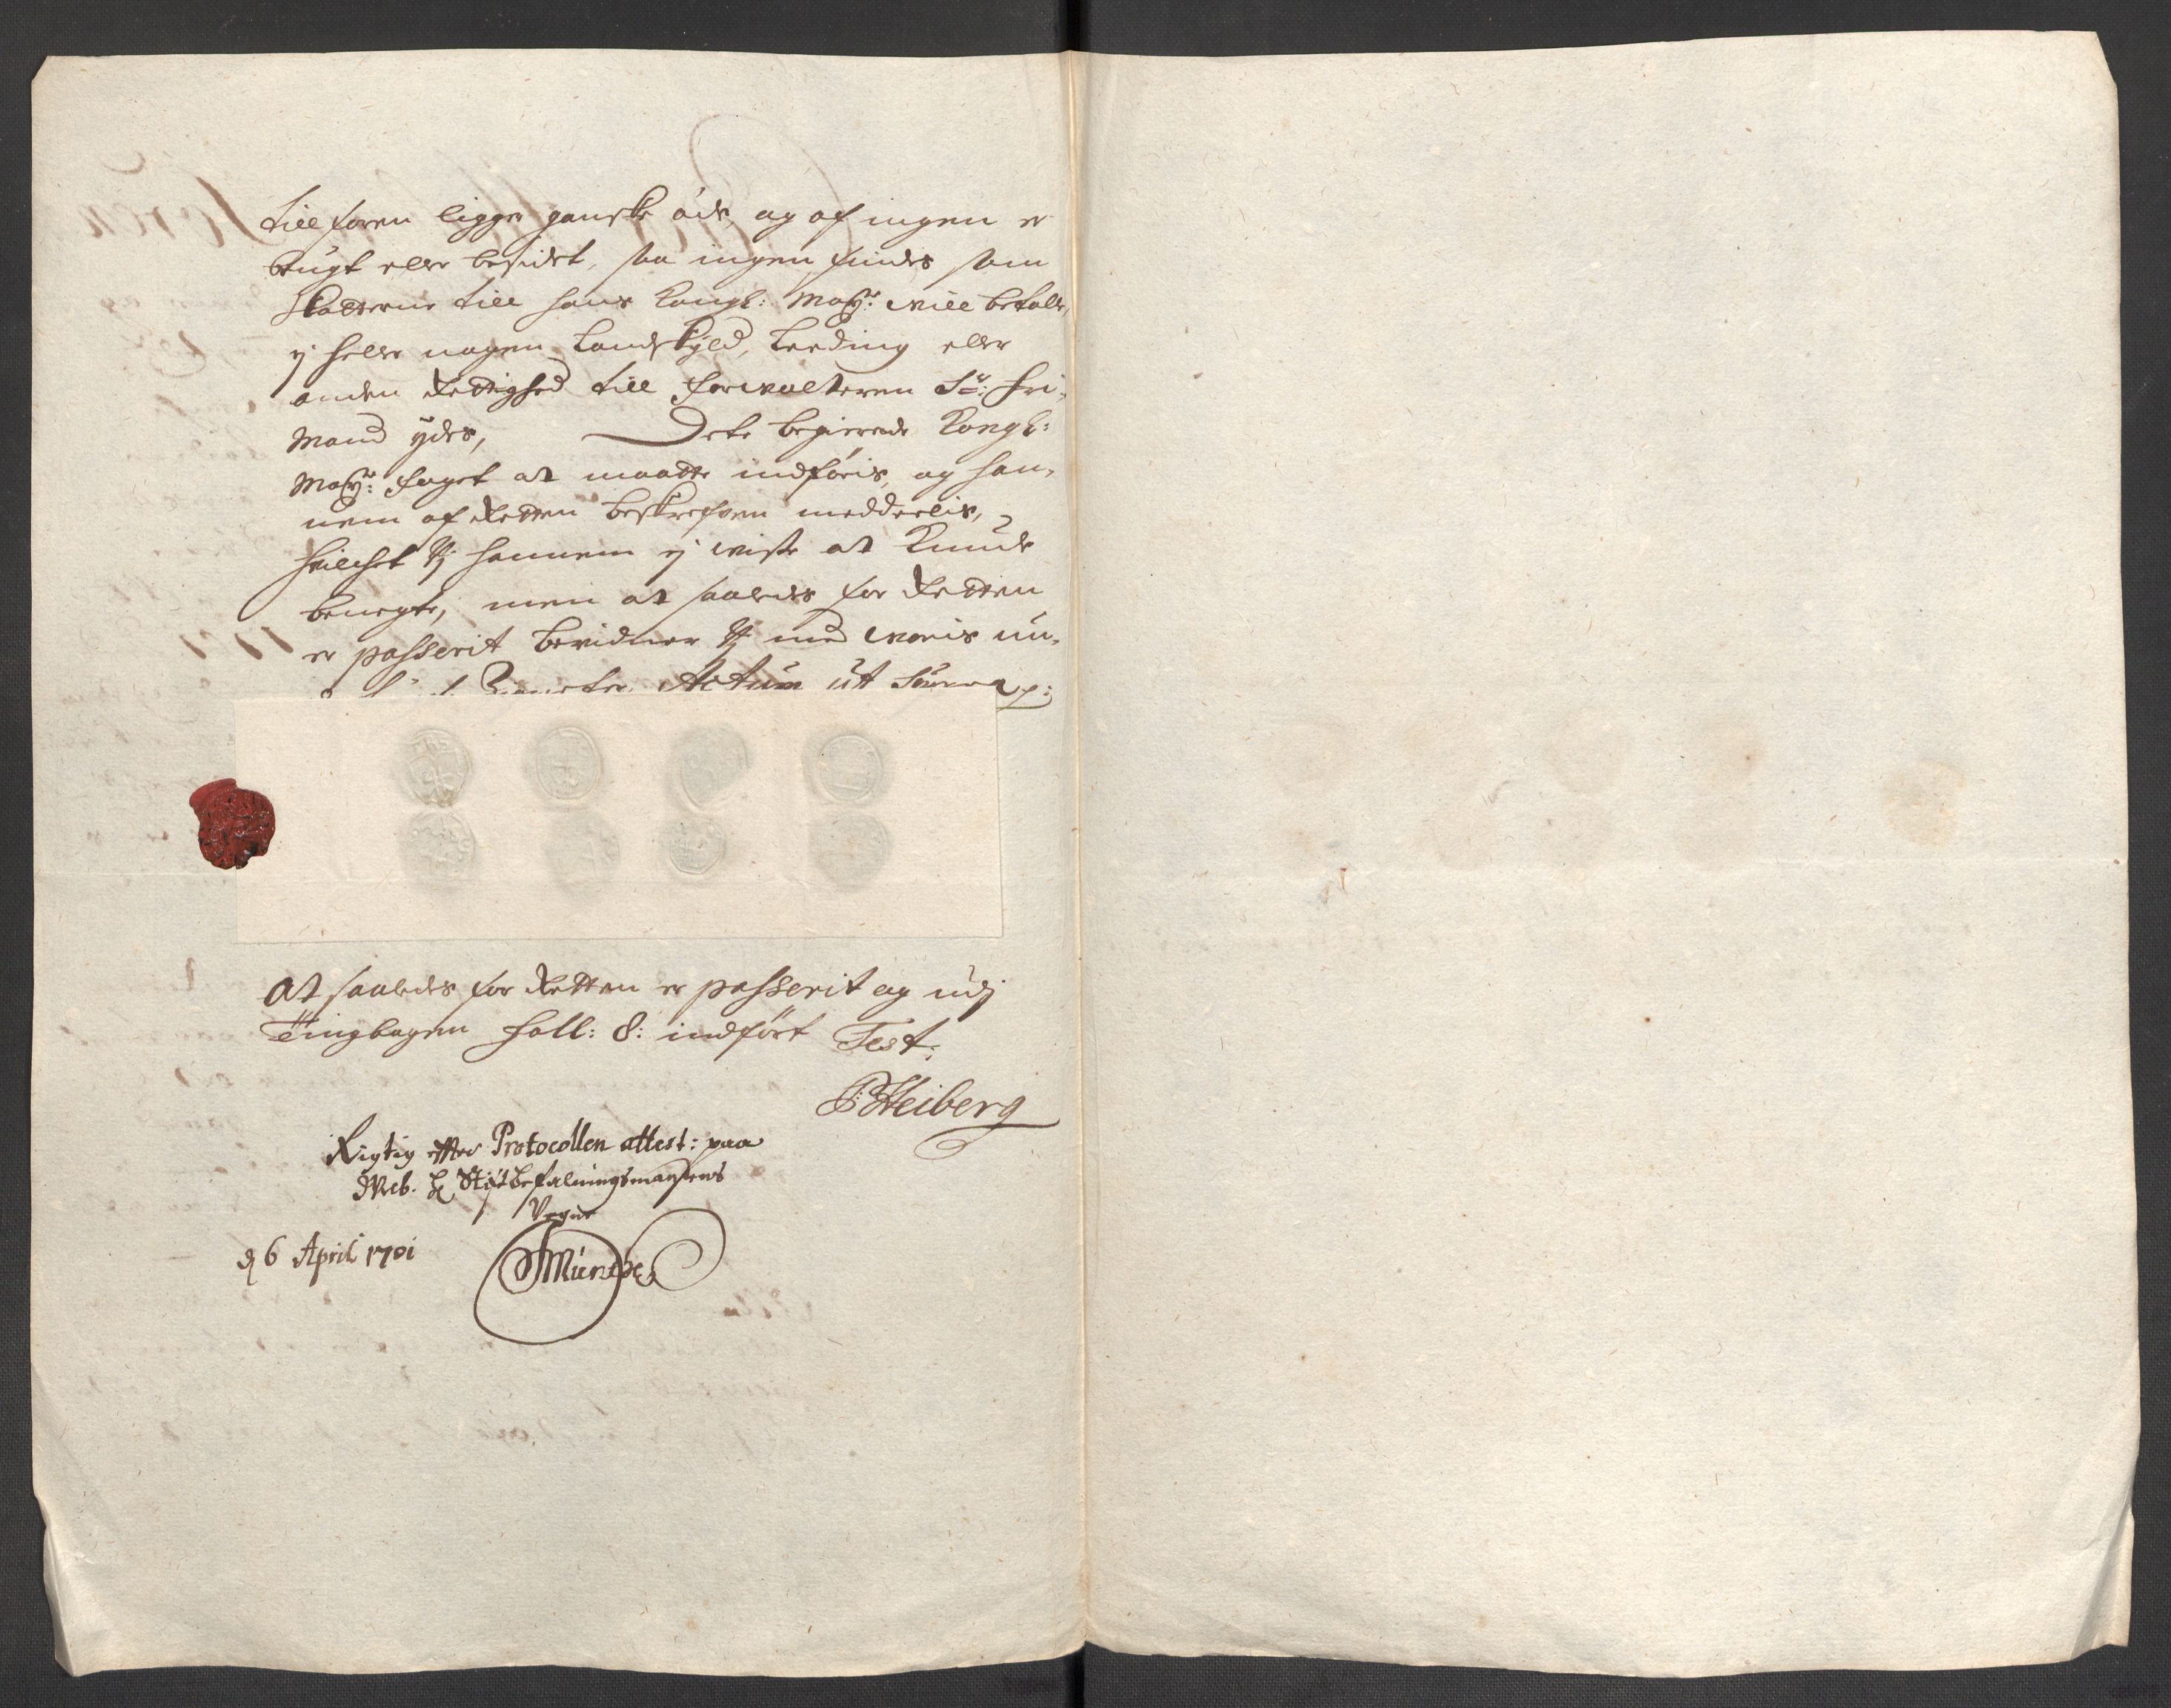 till foren ligger gandske øde, og af ingen er
brugt eller besidet, saa ingen findes som
skatterne till hans Kongl: May:tz will betalle,
ej heller nogen Landskyld, Leeding eller
anden Rettighed till forwalteren Sr: Fri-
mand ydes, Dete begierede Kongl:
May:tz foget at maatte indføris, og han-
nem af Retten beskrefven meddeelis,
hvilchet Vj hannem ej wiste at kunde
benegte, men at saaledes for Retten
er passerit bevidner Vj med woris un-
Actum ut Supra
At saaledes for Retten er passerit og udj
Tingbogen foll: 8: indført Test:
P: Heiberg
Rigtig efter Protocollen attest: paa
Velb. H Stiftbefalningsmandens
Vegne
d 6 April 1701
Münthe